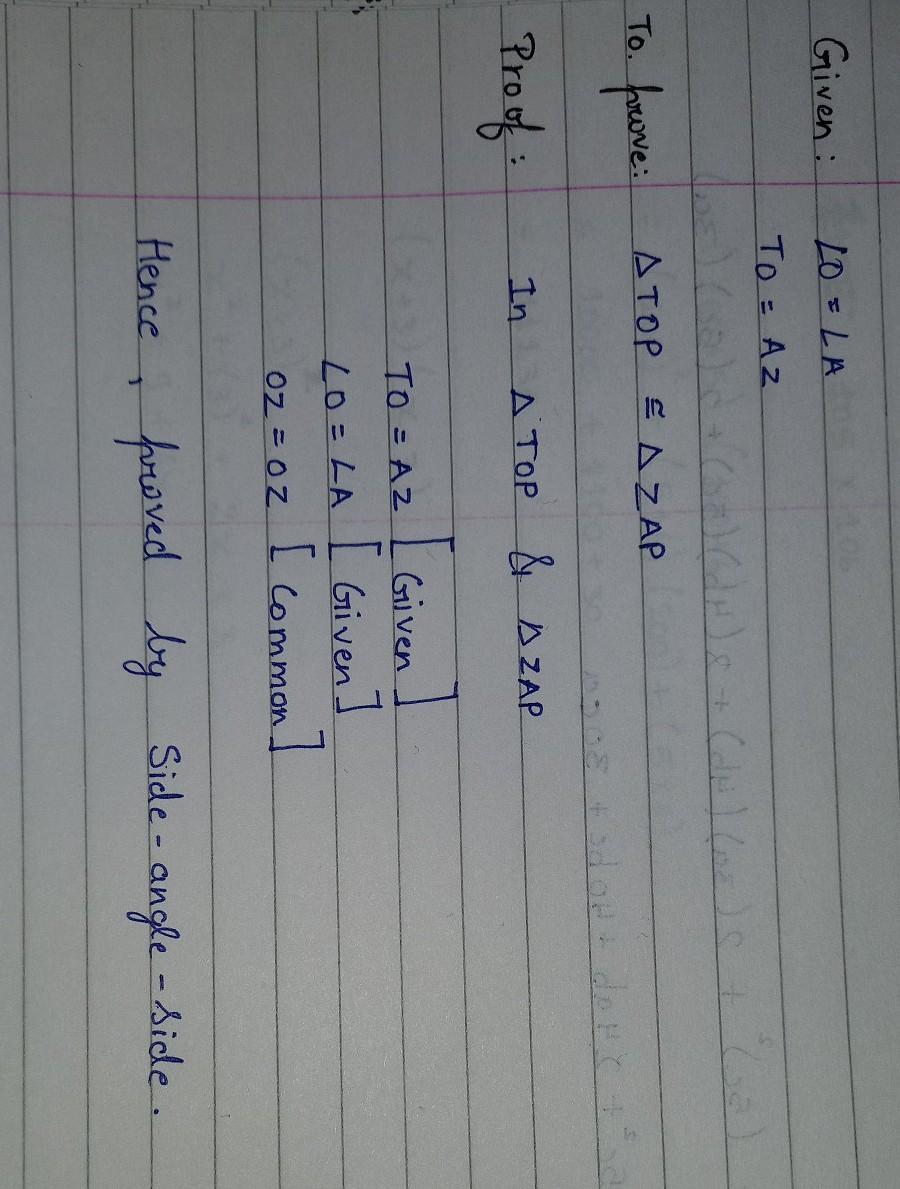 Given: ∠O = ∠A
TO = AZ
To prove: Δ TOP ≅ Δ ZAP
Proof: In Δ TOP & Δ ZAP
TO = AZ [Given]
∠O = ∠A [Given]
OZ = OZ [Common]
Hence, proved by Side-angle-side.